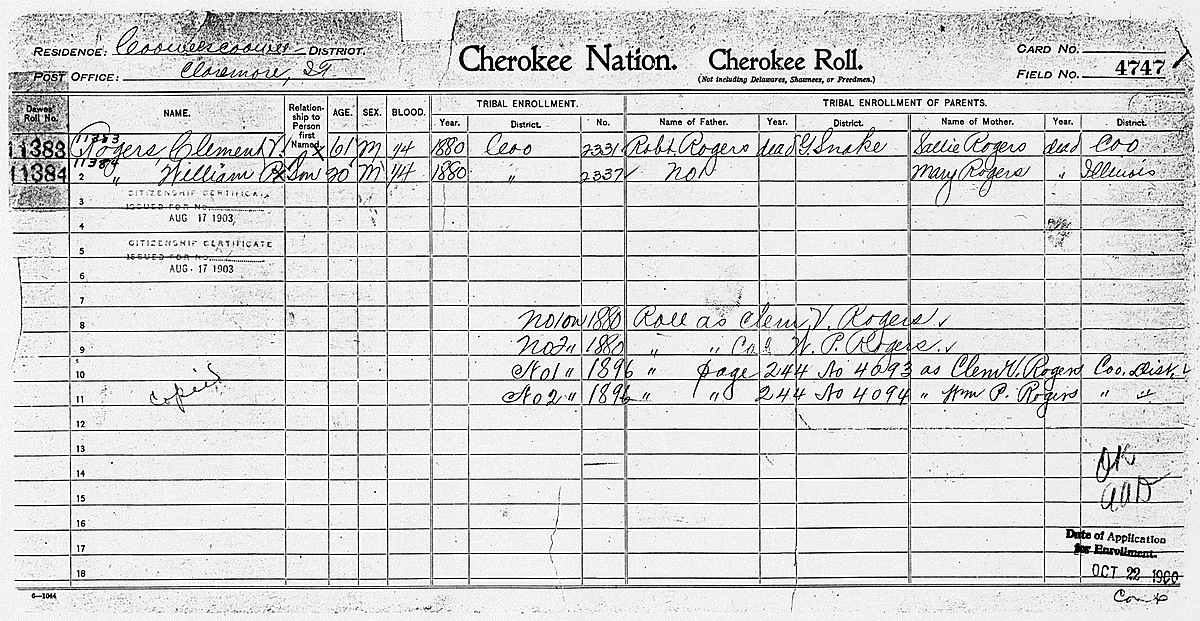 RESIDENCE: Cooweescoowee DISTRICT.
POST OFFICE: Claremore, IT
Cherokee Nation. Cherokee Roll.
(Not Including Delawares, Shawnees, or Freedmen.)
CARD NO.
FIELD NO. 4747
Dawes' Roll No. NAME. Relationship to Person first Named. AGE. SEX. BLOOD. TRIBAL ENROLLMENT. TRIBAL ENROLLMENT OF PARENTS.
Year. District. No. Name of Father. Year. District. Name of Mother. Year. District.
11383
11383 Rogers, Clement V. 61 M 1/4 1880 Coo 2331 Robt Rogers dead G. Snake Sallie Rogers dead Coo
11384
11384 2 " William P. Son 20 M 1/4 1880 " 2337 No 1 Mary Rogers " Illinois
3 CITIZENSHIP CERTIFICATE
ISSUED FOR NO.
AUG 17 1903
4
5 CITIZENSHIP CERTIFICATE
ISSUED FOR NO.
AUG. 17 1903
6
7
8 No1 on 1880 Roll as Clem V. Rogers
9 No2 " 1880 " " W. P. Rogers
10 No1 " 1896 " page 244 No 4093 as Clem V. Rogers Coo. Dist.
11 No2 " 1896 " " 244 No 4094 " Wm P. Rogers " "
copied
12
13
14
OK
15
16
17
18
Date of Application
for Enrollment.
OCT 22 1900
6—1044